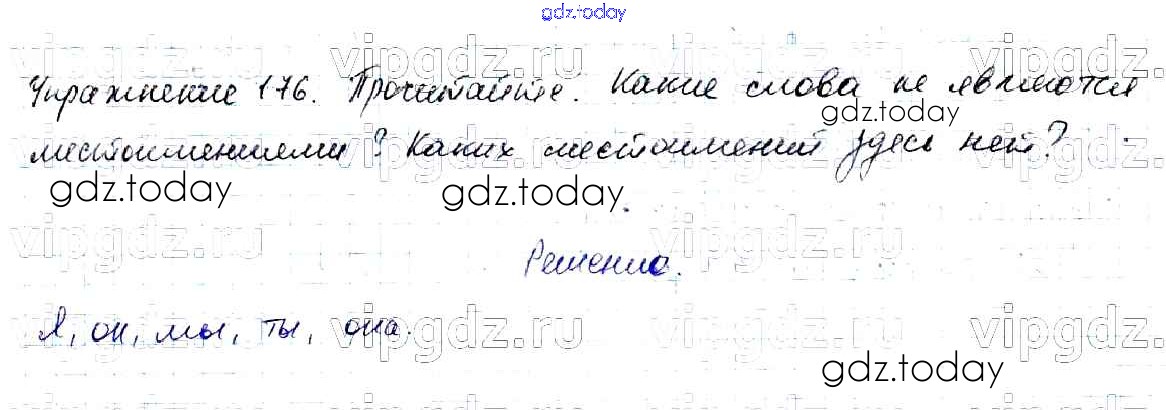 gdz.today
vipgdz.ru vipgdz.ru vipgdz.ru vipgdz.ru
Упражнение 176. Прочитайте. Какие слова не являются
gdz.today
местоимениями? Каких местоимений здесь нет?
gdz.today gdz.today
vipgdz.ru vipgdz.ru vipgdz.ru vipgdz.ru
Решение.
vipgdz.ru vipgdz.ru vipgdz.ru vipgdz.ru
Я, он, мы, ты, она.
gdz.today